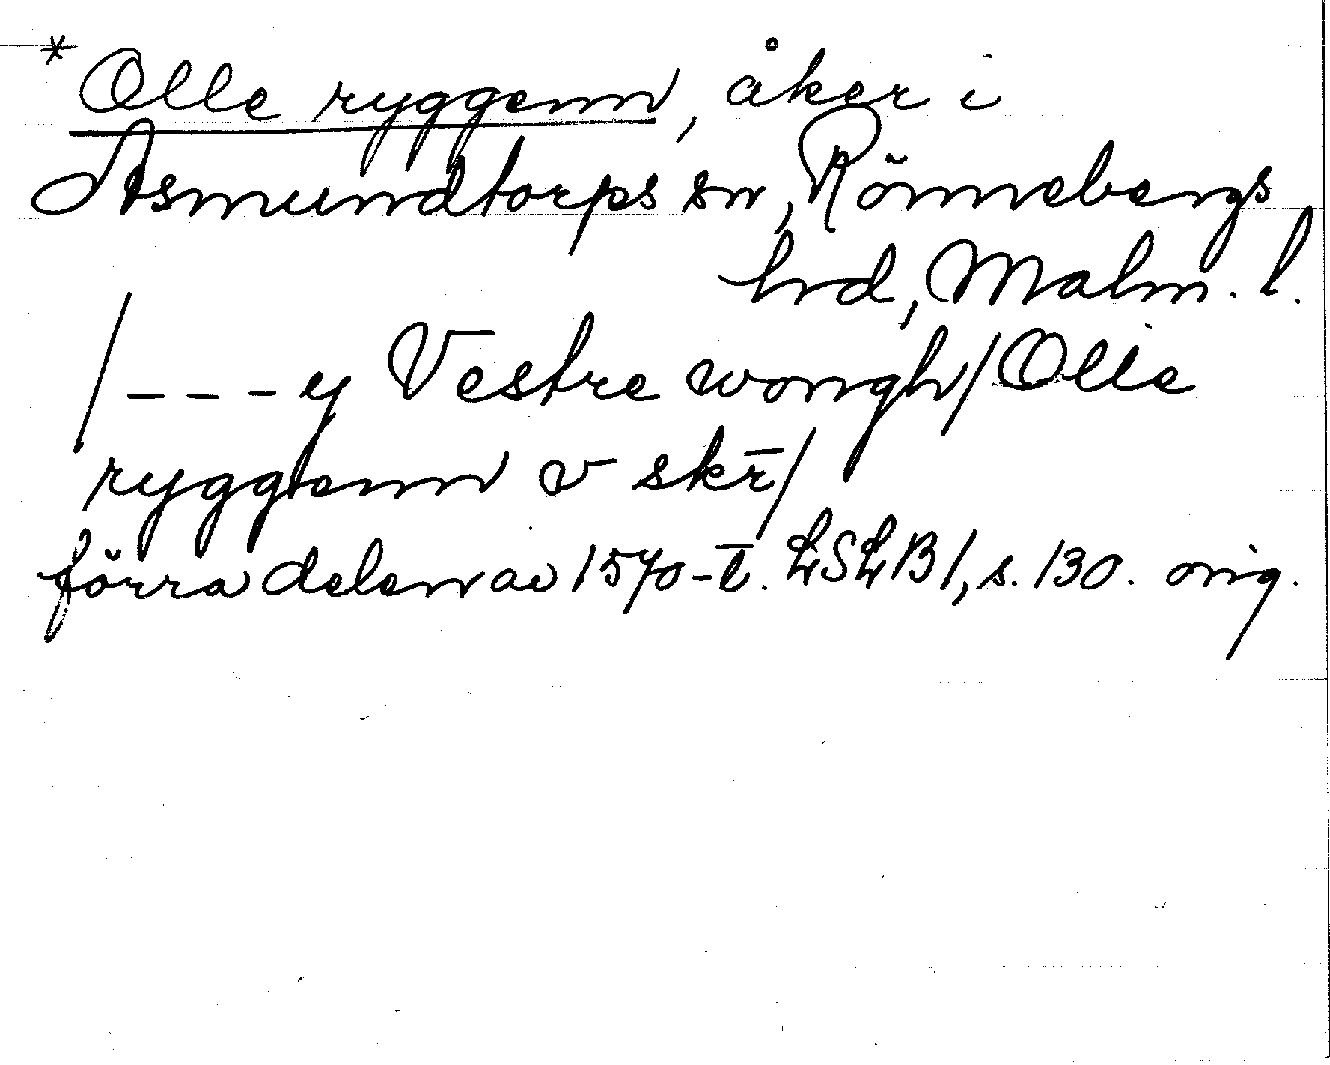 * Olle ryggenn, åker i
Asmundtorps sn, Rönnebergs
hrd, Malm. l.
/ - - - y Vestre wongh / Olle
ryggenn v skr̄ /
förra delen av 1570-t̄. LSLB 1, s. 130. orig.